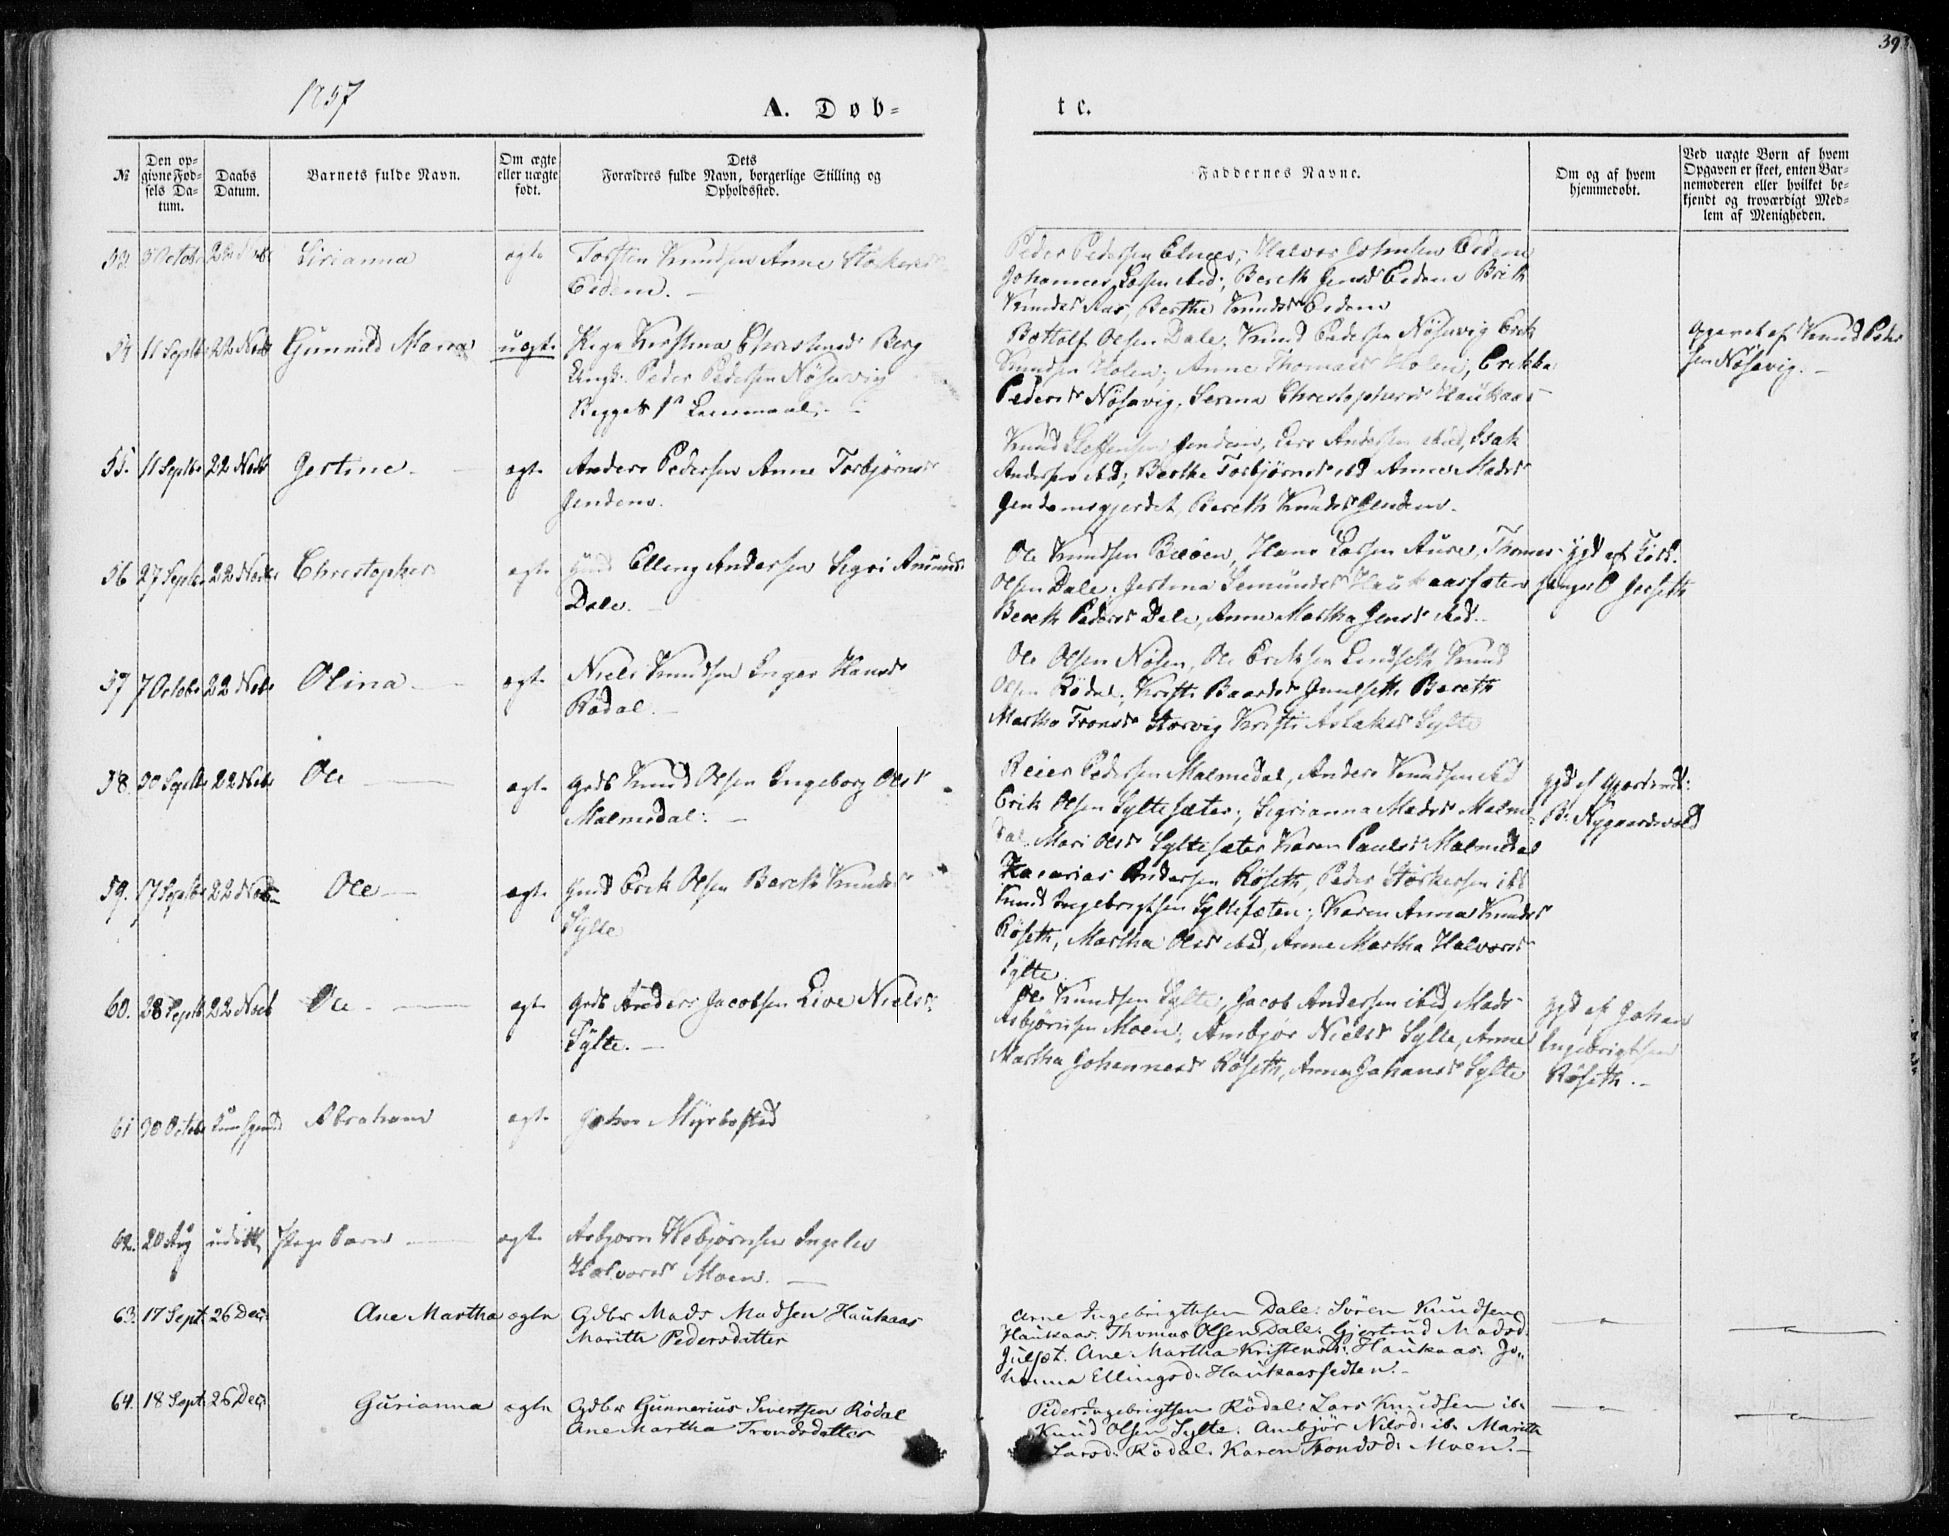 393
1857
A. Døb-
te.
№
Den op-
givne Fød-
sels Da-
tum.
Daabs
Datum.
Barnets fulde Navn.
Om ægte
eller uægte
født.
Dets
Forældres fulde Navn, borgerlige Stilling og
Opholdssted.
Faddernes Navne.
Om og af hvem
hjemmedøbt.
Ved uægte Børn af hvem
Opgaven er skeet, enten Bar-
nemoderen eller hvilket be-
kjendt og troværdigt Med-
lem af Menigheden.
53. 5 Octobr Sirianna ægte Torsten Knudsen Anne Størkersdr
Eidem.
Peder Pedersen Elnæs, Halvor Eidem
Johannes ibid; Bereth Jensdr Eidem Brith
Knudsdr Aas, Berthe Knudsdr Eidem
54 11 Septbr 22 Novbr Gunnild Maria uægte Pige Kirstina Christensdr Berg
Ungk: Peder Pedersen Nøsavig
Begges 1ste Leiermaal.
Botholf Olsen Dale, Knud Pedersen Nøsavig Erik
Knudsen Holen, Anne Thomasdr Holen, Erikka
Pedersdr Nøsavig, Serina Christophersdr Haukaas
Opgivet af Knud Peder
sen Nøsavig.
55. 11 Septbr 22 Novbr Gertine ægte Anders Pedersen Anne Torbjørnsdr
Jendem.
Knud Steffensen Jendem, Lars Andersen ibid, Isak
Andersen ibid; Berthe Torbjørnsdr ibd Anne Madsdr
Jendemsgjerdet, Bereth Knudsdr Jendem.
56 27 Septbr 22 Novbr Christopher ægte Gmd Elling Andersen Sigri Amundsdr
Dale.
Ole Knudsen Bræen, Hans Larsen Aure, Thomas
Olsen Dale; Jertina Semundsdr Haukaassæter
Bereth Pedersdr Dale, Anne Martha Jensdr ibid.
Hjd af Kirk.
sanger Jerseth
57 7 Octobr 22 Novbr Olina ægte Niels Knudsen Inger Hansdr
Rødal.
Ole Olsen Nøsen, Ole Eriksen Lindseth Knud
Olsen Rødal; Kirsti Baardsdr Gulseth Bereth
Martha Tronsdr Storvig Kirsti Aslaksdr Sylte
58. 30 Septbr 22 Novbr Ole ægte Grdb Knud Olsen Ingeborg Olsdr
Malmedal.
Beier Pedersen Malmedal, Anders Knudsen ibd
Erik Olsen Syltesæter, Sigrianna Madsdr Malme-
dal Mari Olsdr Syltesæter Karen Paulsdr Malmedal
Hjd af Gjordmd:
B. Nygaardsvold
59. 17 Septbr 22 Novbr Ole ægte Gmd Erik Olsen Bereth Knudsdr
Sylte
Zacarias Andersen Røseth, Peder Størkersen ibd
Knud Ingebrigtsen Syltesæter; Karen Anna Knudsdr
Røseth, Martha Olsdr ibid, Anne Martha Halvorsdr
Sylte
60. 28 Septb 22 Novb Ole ægte Grdb Anders Jacobsen Live Nielsdr
Sylte.
Ole Knudsen Sylte, Jacob Andersen ibid, Mads
Asbjørnsen Moen, Ambjør Nielsdr Sylte, Anne
Martha Johannesdr Røseth, Anne Johansdr Sylte
Hjd af Johan
Ingebrigtsen
Røseth.
61 30 Octobr Abraham ægte Johan Myrbostad
62. 20 Aug udøbt Pigebarn ægte Asbjørn Webjørnsen Ingeleu
Halvorsdr Moen.
63. 17 Sept. 26 Decr. Ane Martha ægte Gdbr Mads Madsen Haukaas
Marith Pedersdatter
Arne Ingebrigthsen Dale. Søren Knudsen
Haukaas. Thomas Olsen Dale. Gjertrud Madsd.
Julset. Ane Martha Kristensd. Haukaas. Jo-
hanna Ellingsd. Haukaassetren.
64. 18 Sept. 26 Decr. Gurianna ægte Gdbr Gunnerius Sivertsen Rødal
Ane Martha Trondsdatter
Peder Ingebrigtsen Rødal. Lars Knudsen ib.
Knud Olsen Sylte. Ambjør Nilsd. ib. Marith
Larsd. Rødal. Karen Trondsd. Moen.